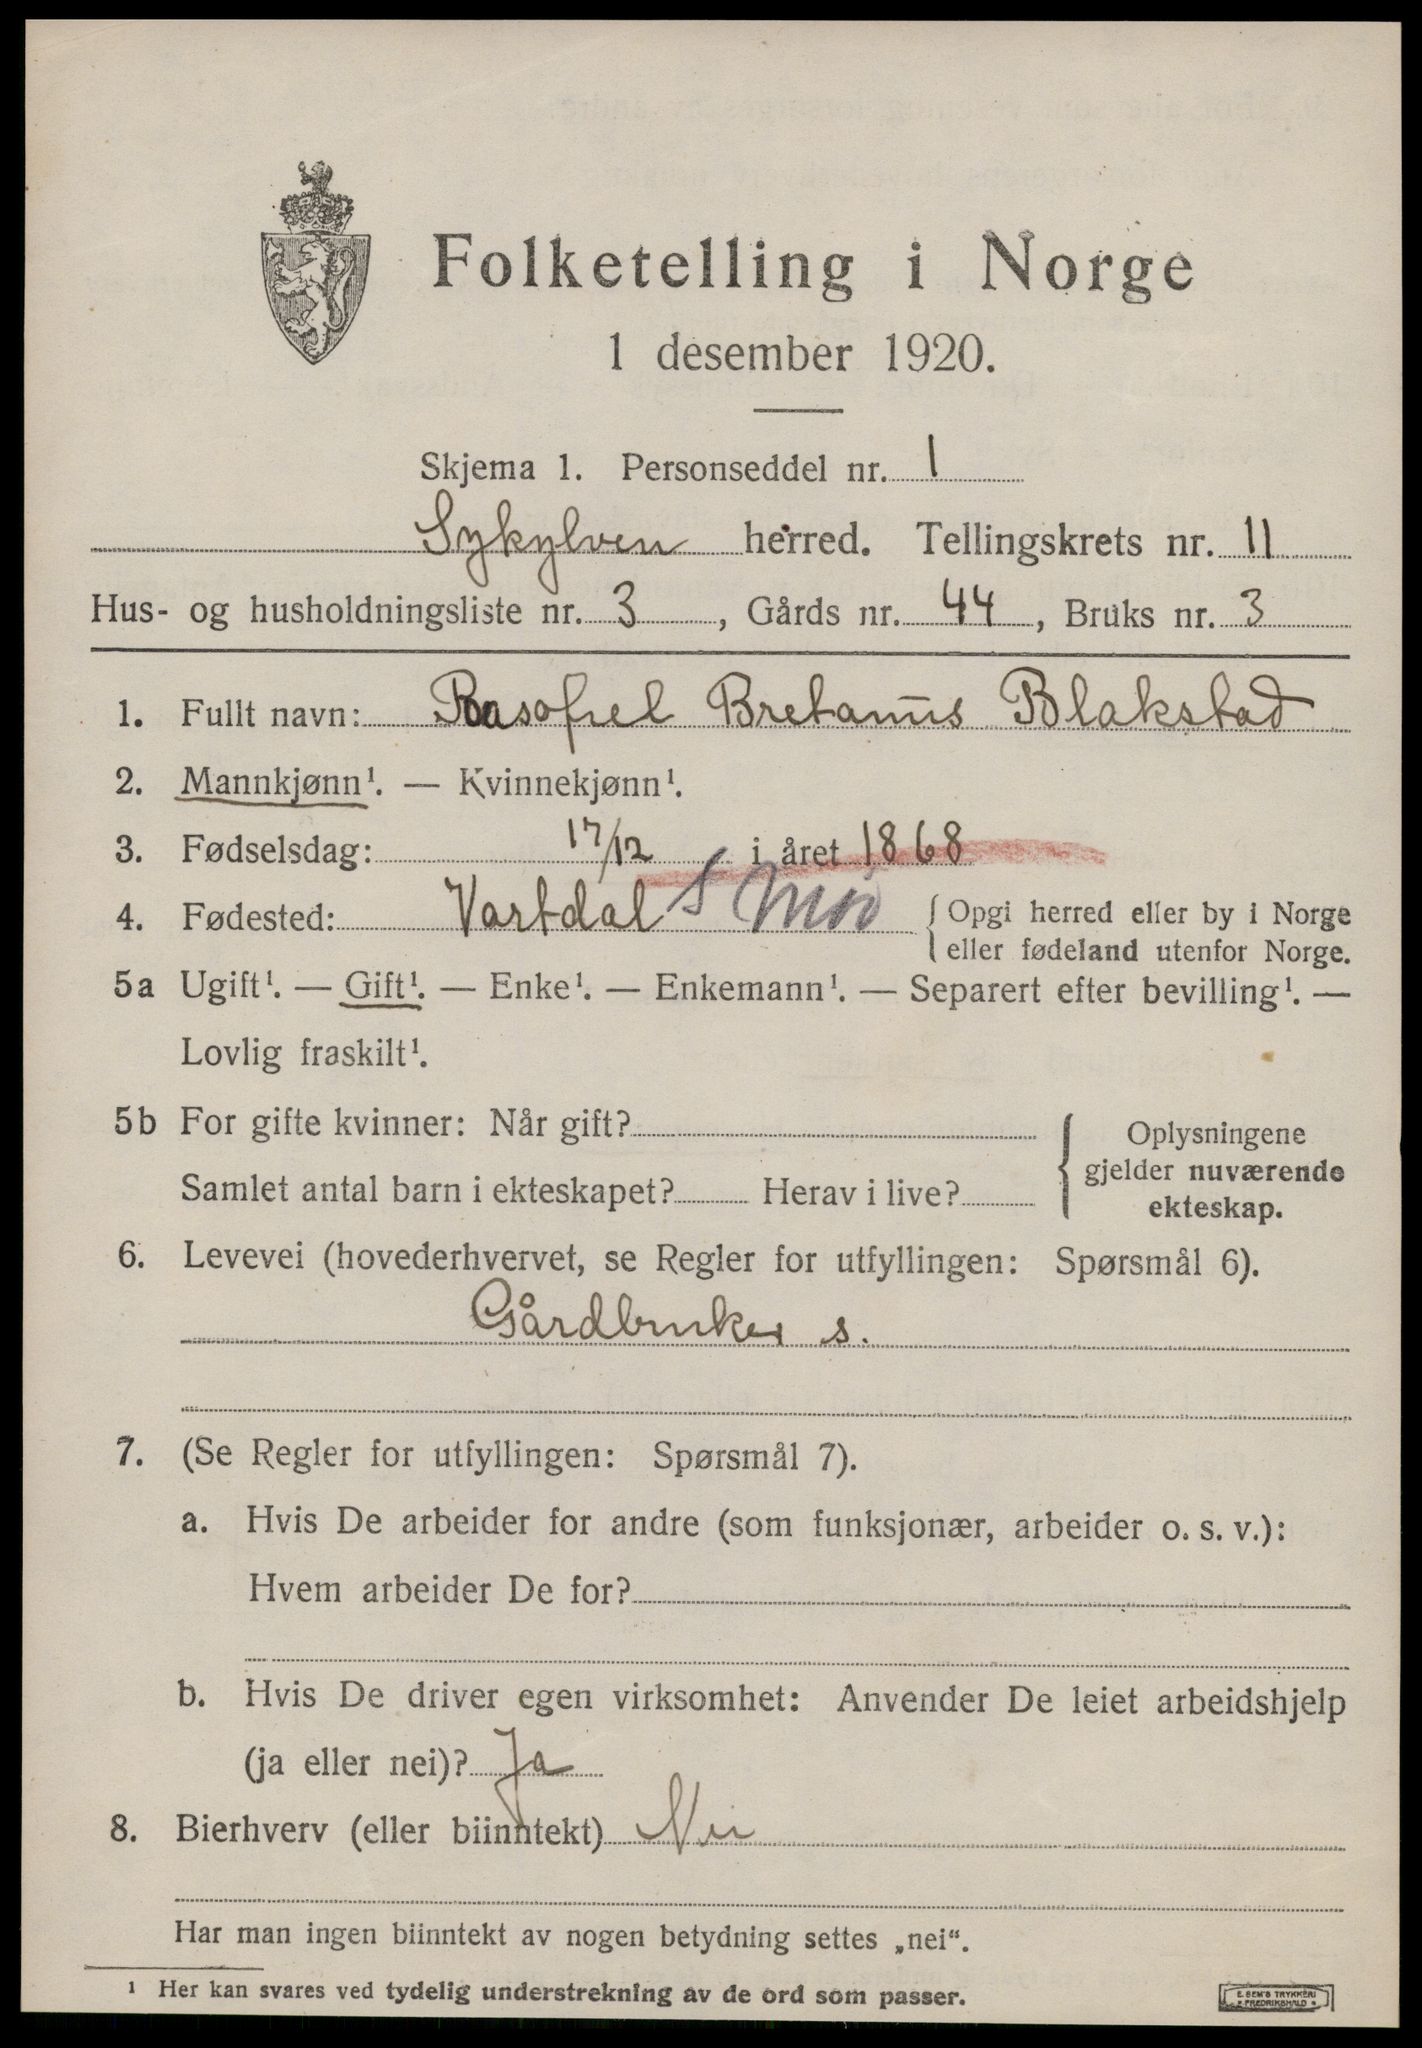 Folketelling i Norge
1 desember 1920.
Skjema 1. Personseddel nr. 1
Sykylven herred. Tellingskrets nr. 11
Hus- og husholdningsliste nr. 3, Gårds nr. 44, Bruks nr. 3
1. Fullt navn: Rasofiel Bretanus Blakstad
2. Mannkjønn¹. — Kvinnekjønn¹.
3. Fødselsdag: 17/12 i året 1868
4. Fødested: Vartdal S Mør
{ Opgi herred eller by i Norge
eller fødeland utenfor Norge.
5a Ugift¹. — Gift¹. — Enke¹. — Enkemann¹. — Separert efter bevilling¹. —
Lovlig fraskilt¹.
5b For gifte kvinner: Når gift?
Samlet antal barn i ekteskapet? Herav i live?
{ Oplysningene
gjelder nuværende
ekteskap.
6. Levevei (hovederhvervet, se Regler for utfyllingen: Spørsmål 6).
Gårdbruker s.
7. (Se Regler for utfyllingen: Spørsmål 7).
a. Hvis De arbeider for andre (som funksjonær, arbeider o. s. v.):
Hvem arbeider De for?
b. Hvis De driver egen virksomhet: Anvender De leiet arbeidshjelp
(ja eller nei)? Ja
8. Bierhverv (eller biinntekt) Nei
Har man ingen biinntekt av nogen betydning settes „nei“.
¹ Her kan svares ved tydelig understrekning av de ord som passer.
E. SEM'S TRYKKERI
FREDRIKSHALD